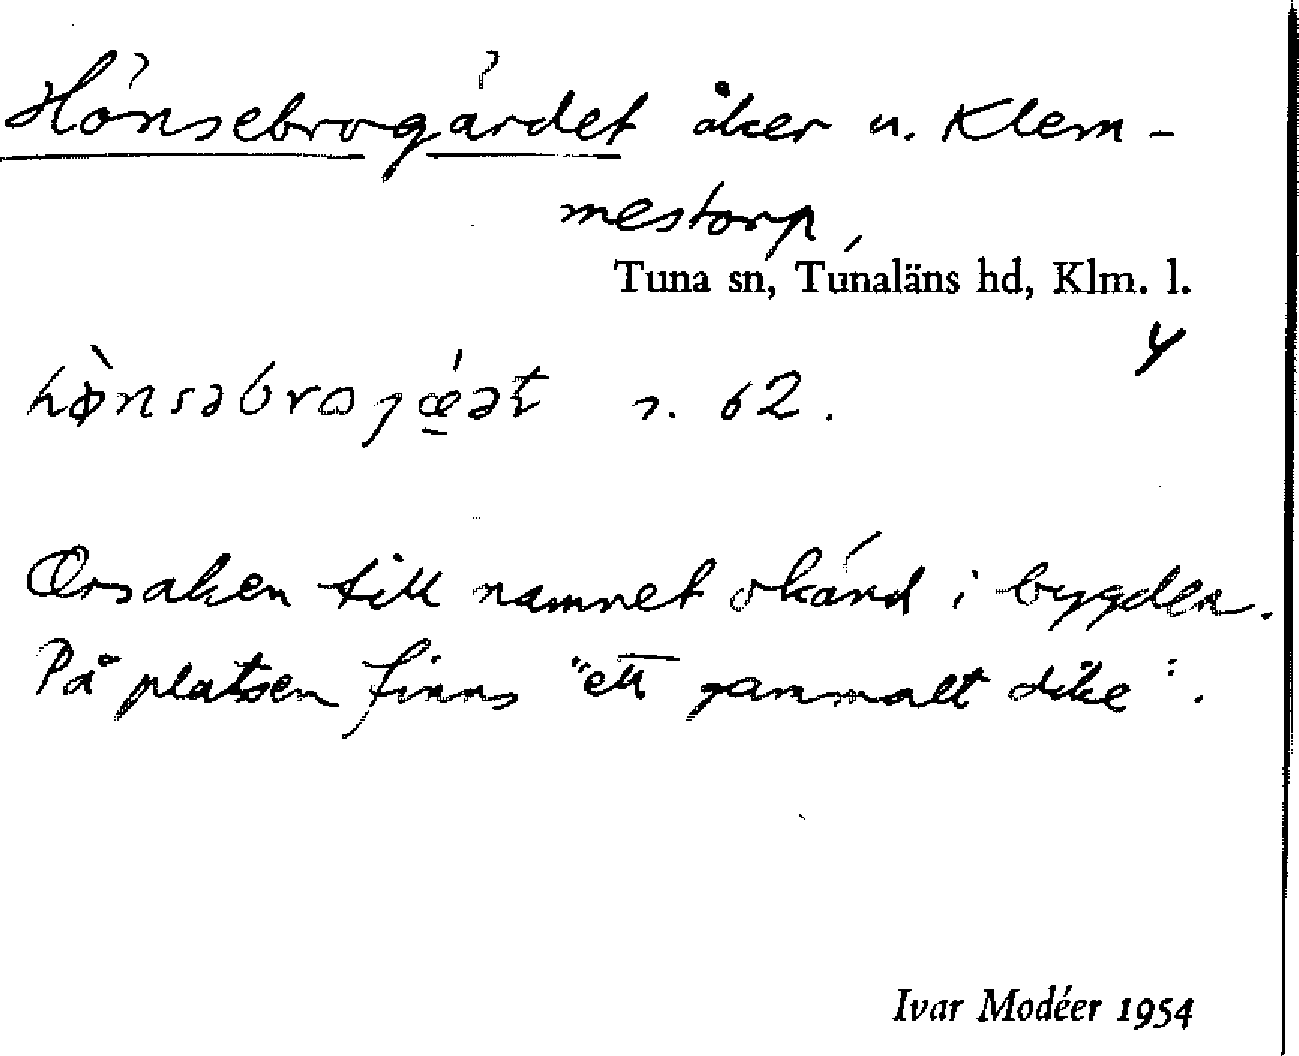 Hönsebrogärdet åker u. Klem-
mestorp,
Tuna sn, Tunaläns hd, Klm. l.
4
s. 62.
Orsaken till namnet okänd i bygden.
På platsen finns "ett gammalt dike".
Ivar Modéer 1954